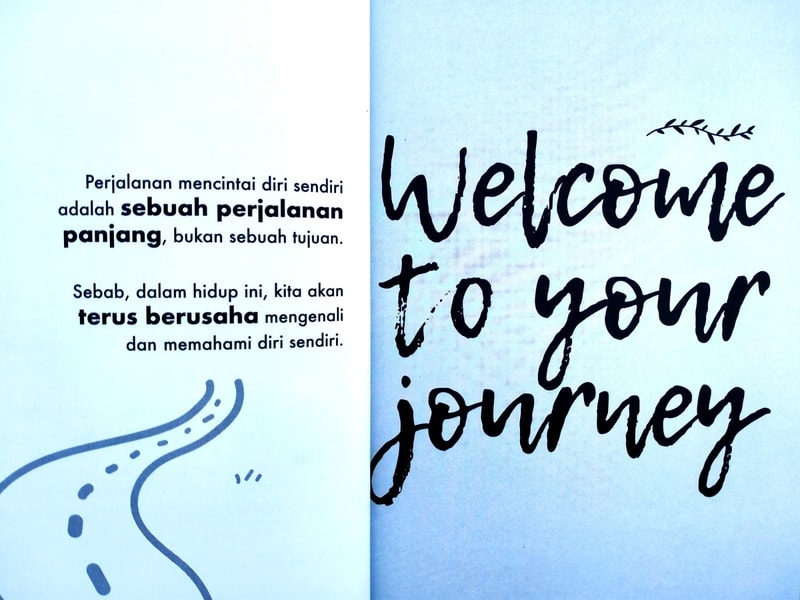 Perjalanan mencintai diri sendiri
adalah sebuah perjalanan
panjang, bukan sebuah tujuan.
Sebab, dalam hidup ini, kita akan
terus berusaha mengenali
dan memahami diri sendiri.
Welcome
to your
journey